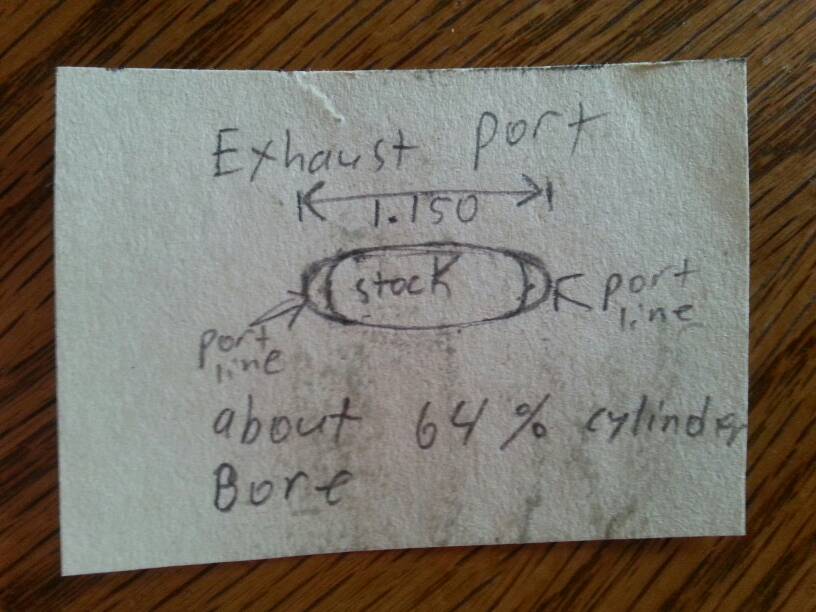 Exhaust port
1.150
stock
port
line
port
line
about 64% cylinder
Bore